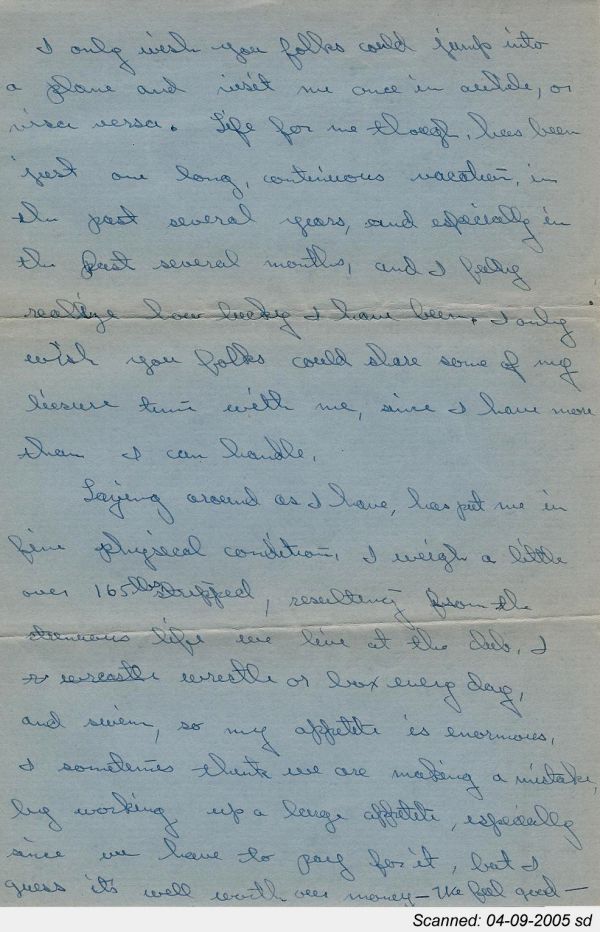 I only wish you folks could jump into
a plane and visit me once in awhile, or
visa versa. Life for me though, has been
just one long, continuous vacation, in
the past several years, and especially in
the past several months, and I fully
realize how lucky I have been. I only
wish you folks could share some of my
liesure time with me, since I have more
than I can handle.
Laying around as I have, has put me in
fine physical condition. I weigh a little
over 165 lbs stripped, resulting from the
strenuous life we live at the club. I
wrestle or box every day,
and swim, so my appetite is enormous.
I sometimes think we are making a mistake,
by working up a large appetite, especially
since we have to pay for it, but I
guess its well worth our money - We feel good -
Scanned: 04-09-2005 sd